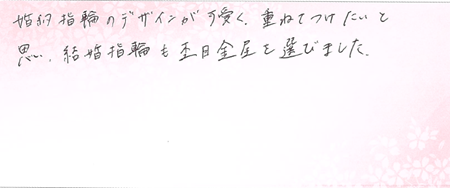 婚約指輪のデザインが可愛く、重ねてつけたいと
思い、結婚指輪も杢目金屋を選びました。